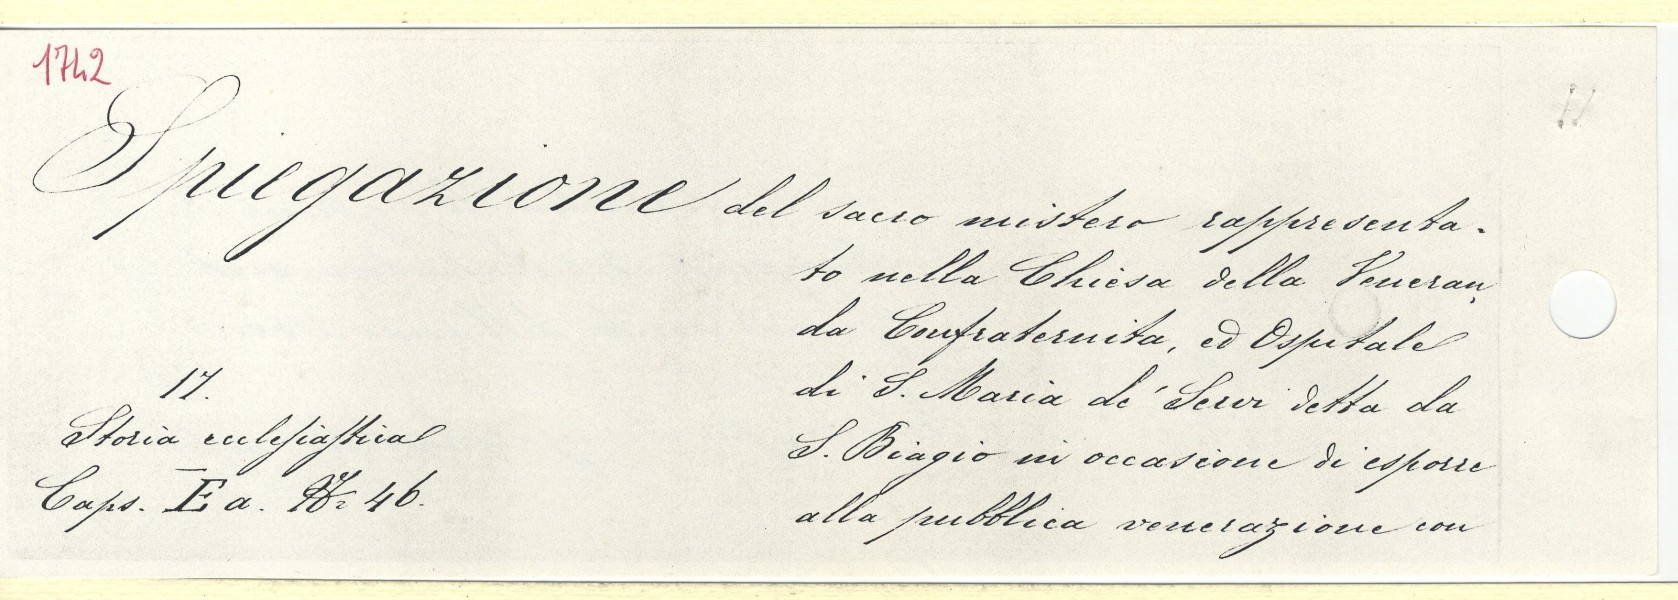 1742
Spiegazione del sacro mistero rappresenta-
to nella Chiesa della Veneran,
da Confraternita, ed Ospitale
di S. Maria de' Servi detta da
S. Biagio in occasione di esporre
alla pubblica venerazione con
17.
Storia ecclesiastica
Caps. E a. No 46.